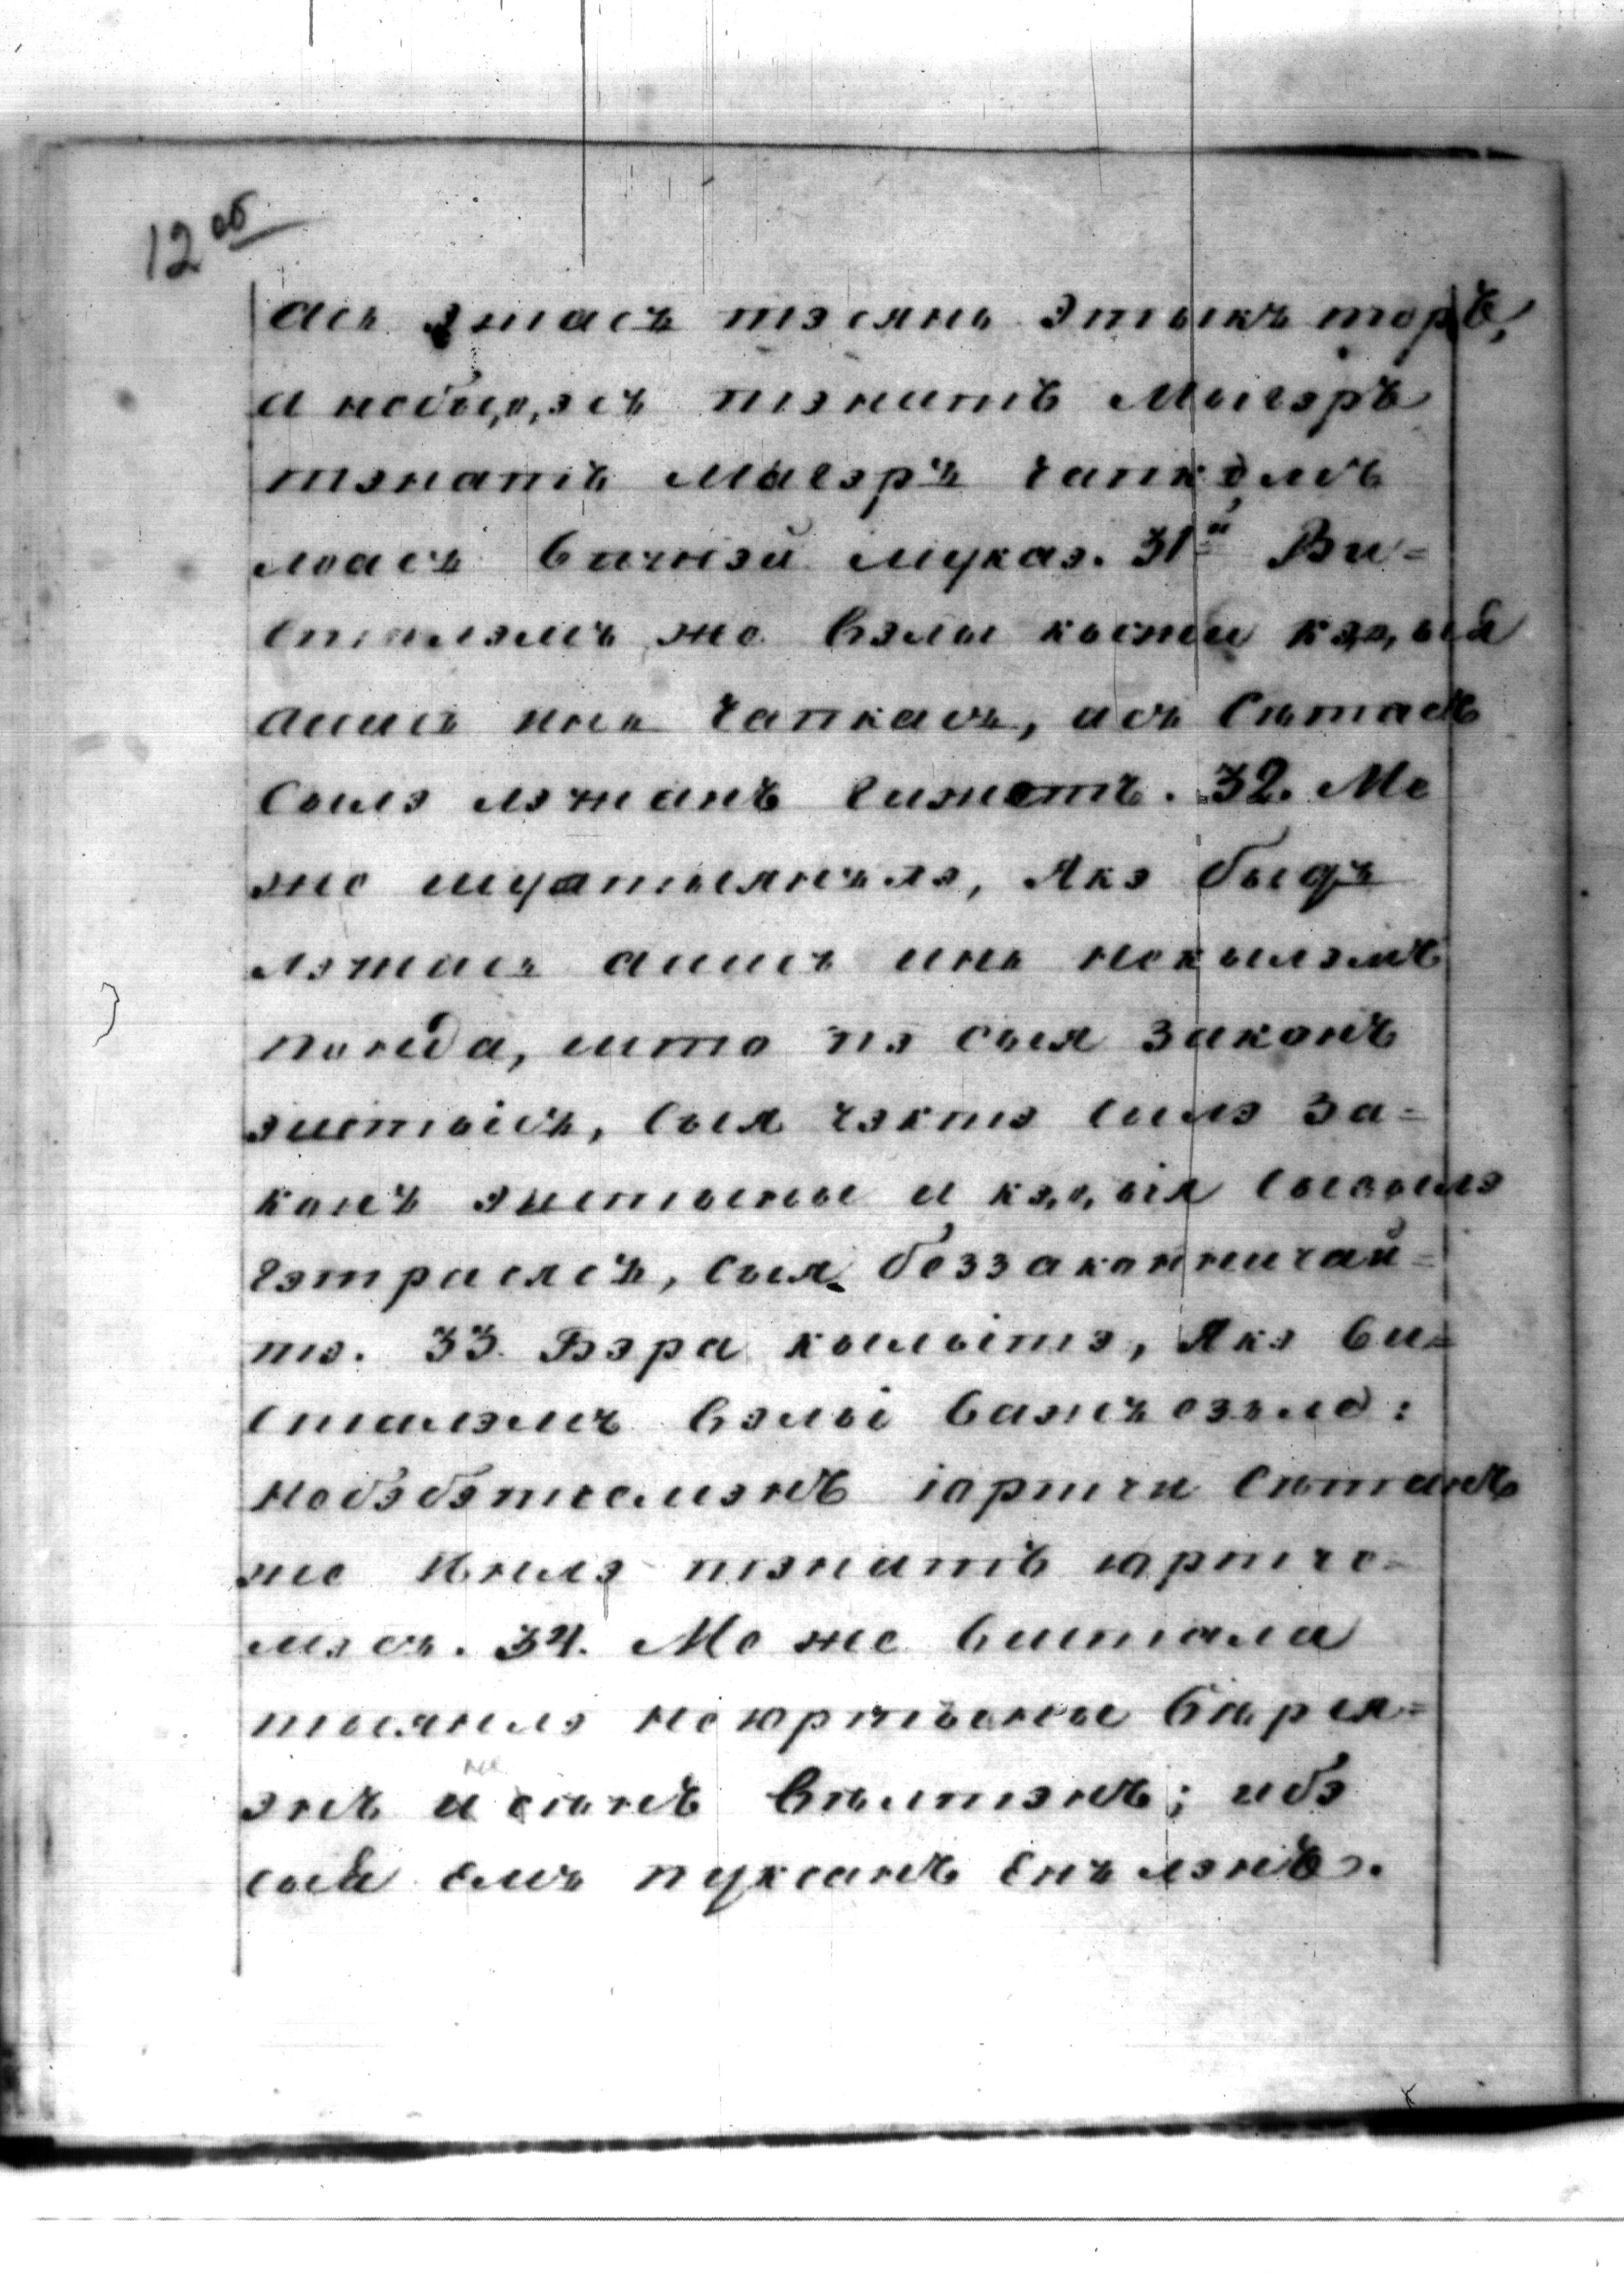 12 об
ась эмась тэсянь этыкъ торъ,
а небы,о,эсъ тэнатъ мыгэръ
тэнатъ мыгэръ чапколъ
моасъ вичнэй муказ. 31й Ви=
сталэмъ же вэлы кыжи кэ,о,ыя
аишь инь чапкасъ, асъ сьтаслъ
сылэ лэжанъ гижетъ. 32. Ме
же шуатыянъ лэ, якэ быдъ
лэжась аишь инь некылэмъ
понда, што пэ сыя законъ
эштыісъ, сыя чэктэ сылэ за=
конъ эштыны и кэ,о,ыя сысылэ
гэтрасясъ, сыя беззаконничай=
тэ. 33. Бэра кылытэ, якэ ви=
сталэмъ вэлыі важъ озьло:
небэбэтчемэнъ іортчи сьтанъ
же Енлэ тэнатъ юртче=
мэсъ. 34. Ме же вистала
тыянлэ не юртъыны барыя=
энъ и сьнъ вьлтэнъ; ибэ
сыя емъ пуксанъ Енъ лэнъ.